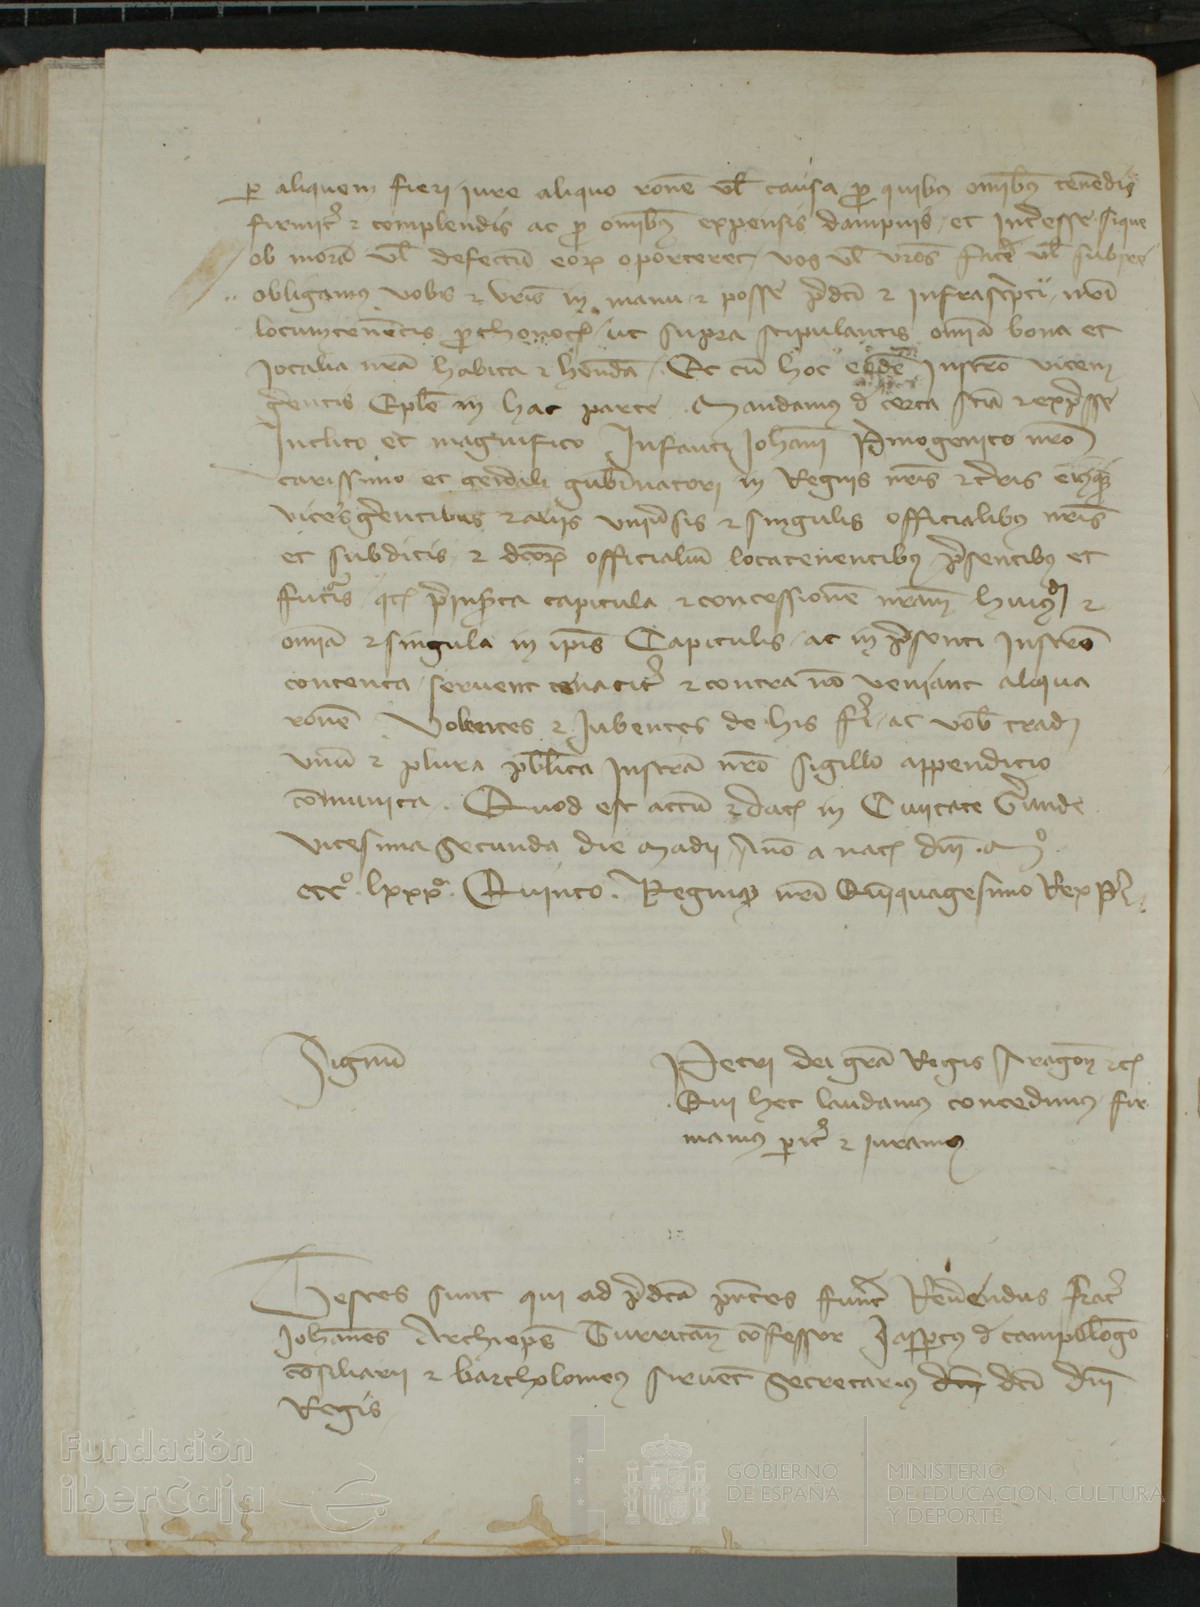 p aliquem fieri iure aliquo ronē vel causa pro quibus omībus tenēdis
firmitr̄ et complendis ac pro omībus expensis dampnis et interesse sique
ob morā vel defectū eorum oporteret vos vel vrōs facē vel subire
obligamus vobis et vrīs in manu et posse pdcī et infrascpti nrī
locumtenētis pthonotͥ ut supra stipulantis omīa bona et
Jocalia nrā habita et hēnda. Et cū hoc eodē Instrō vicem
gentis Eplē in hac parte Mandamus de certa sciā et expsse
Inclito et magnifico Infanti Johanī Pmogenito nrō
carissimo et genāli gubnatori in Regnis nrīs et tris eiusque
vices gentibus et aliis univsis et singulis officialibus nrīs
et subditis et dcorum officialiū locatenentibus psentibus et
futuris qd pinsta capitula et concessionē nram huiusmodi et
omīa et singula in ipīs Capitulis ac in psenti Instrō
contenta servent tenacitr̄ et contra nō veniant aliqua
ronē Volentes et Jubentes de his fri ac vob tradi
unū et plura publīca Instrā nrō sigillo appenditio
cōmunita. Quod est actū et dat in Civitate Gunde
vicesima secunda die Madii Anō a nat dnī Mº
cccº lxxxº Quinto. Regnique nrī Quīquagesimo Rex P.
Signū
Petri dei grā Regis Aragon etc
Qui hec laudamus concedimus fir
mamus parit et iuramus
Testes sunt qui ad pdcā pntes fuerūt Revendus frat
Johanēs Archieps Turritan confessor Jaspertus de campllōgo
cōsiliarii et bartholomeus siruēt Secretarius dnī dcī dnī
Regis
Fundación
iberCaja
GOBIERNO
DE ESPAÑA
MINISTERIO
DE EDUCACIÓN, CULTURA
Y DEPORTE